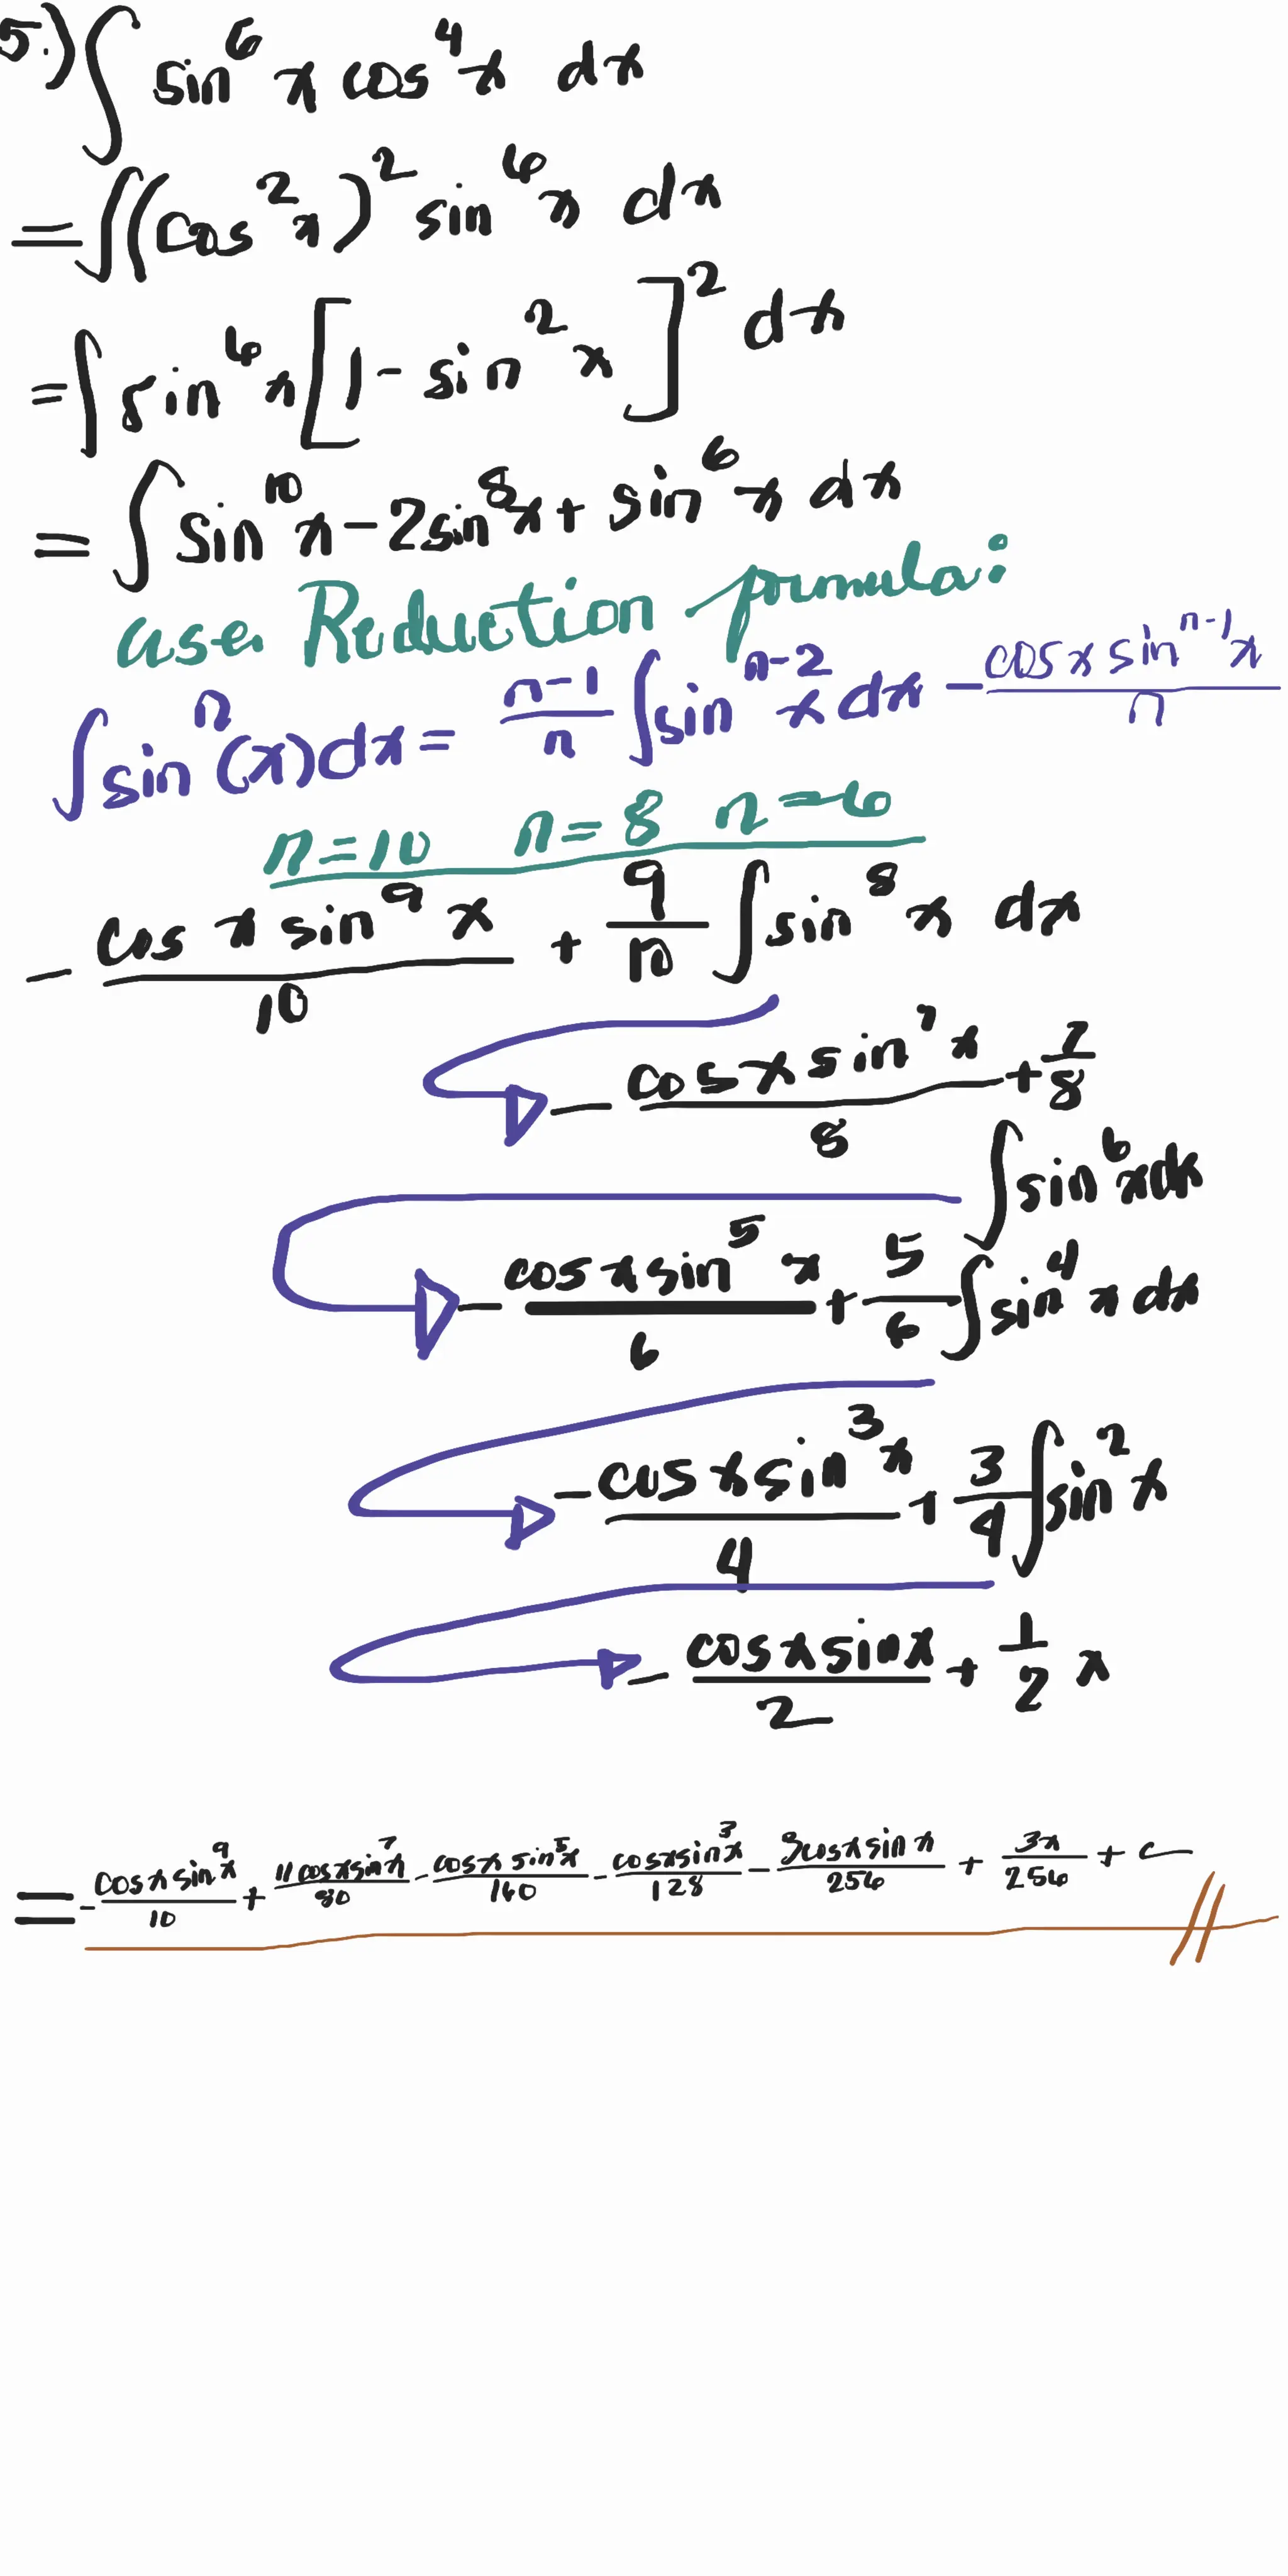 5.) ∫ sin⁶ x cos⁴ x dx
= ∫ (cos² x)² sin⁶ x dx
= ∫ sin⁶ x [1 - sin² x]² dx
= ∫ sin¹⁰ x - 2sin⁸ x + sin⁶ x dx
use Reduction formula:
∫ sinⁿ (x) dx = (n-1)/n ∫ sinⁿ⁻² x dx - (cos x sinⁿ⁻¹ x)/n
n=10 n=8 n=6
- (cos x sin⁹ x)/10 + 9/10 ∫ sin⁸ x dx
- (cos x sin⁷ x)/8 + 7/8
∫ sin⁶ x dx
- (cos x sin⁵ x)/6 + 5/6 ∫ sin⁴ x dx
- (cos x sin³ x)/4 + 3/4 ∫ sin² x
- (cos x sin x)/2 + 1/2 x
= - (cos x sin⁹ x)/10 + (11 cos x sin⁷ x)/80 - (cos x sin⁵ x)/160 - (cos x sin³ x)/128 - (3cos x sin x)/256 + 3x/256 + c